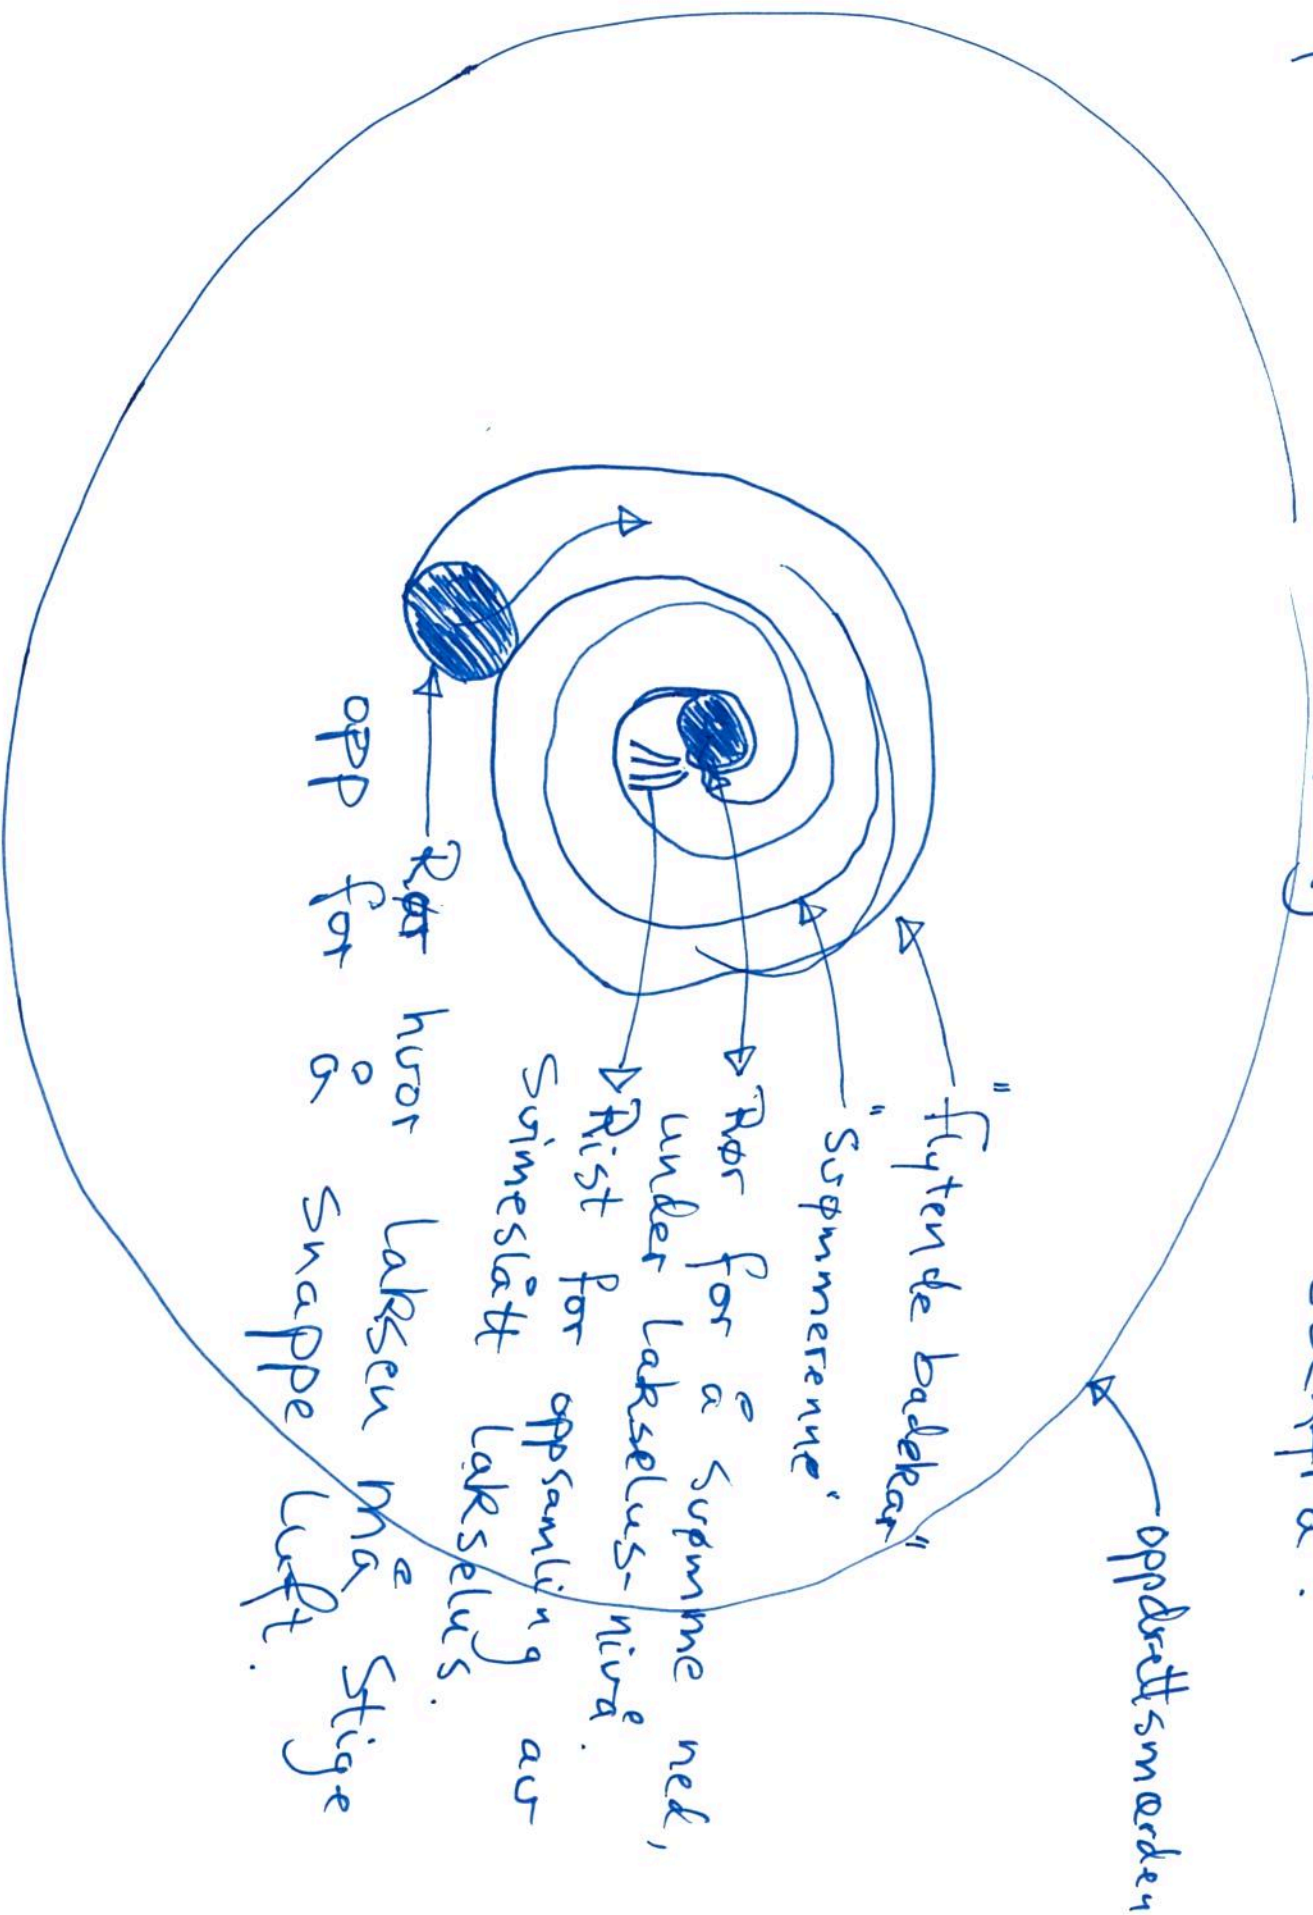 oppdrettsmærden
"flytende badekar"
"Svømmerenne"
Rør for å svømme ned,
under Lakselus-nivå.
Rist for oppsamling av
Svimeslått Lakselus.
Rør hvor Laksen må Stige
opp for å Snappe Luft.